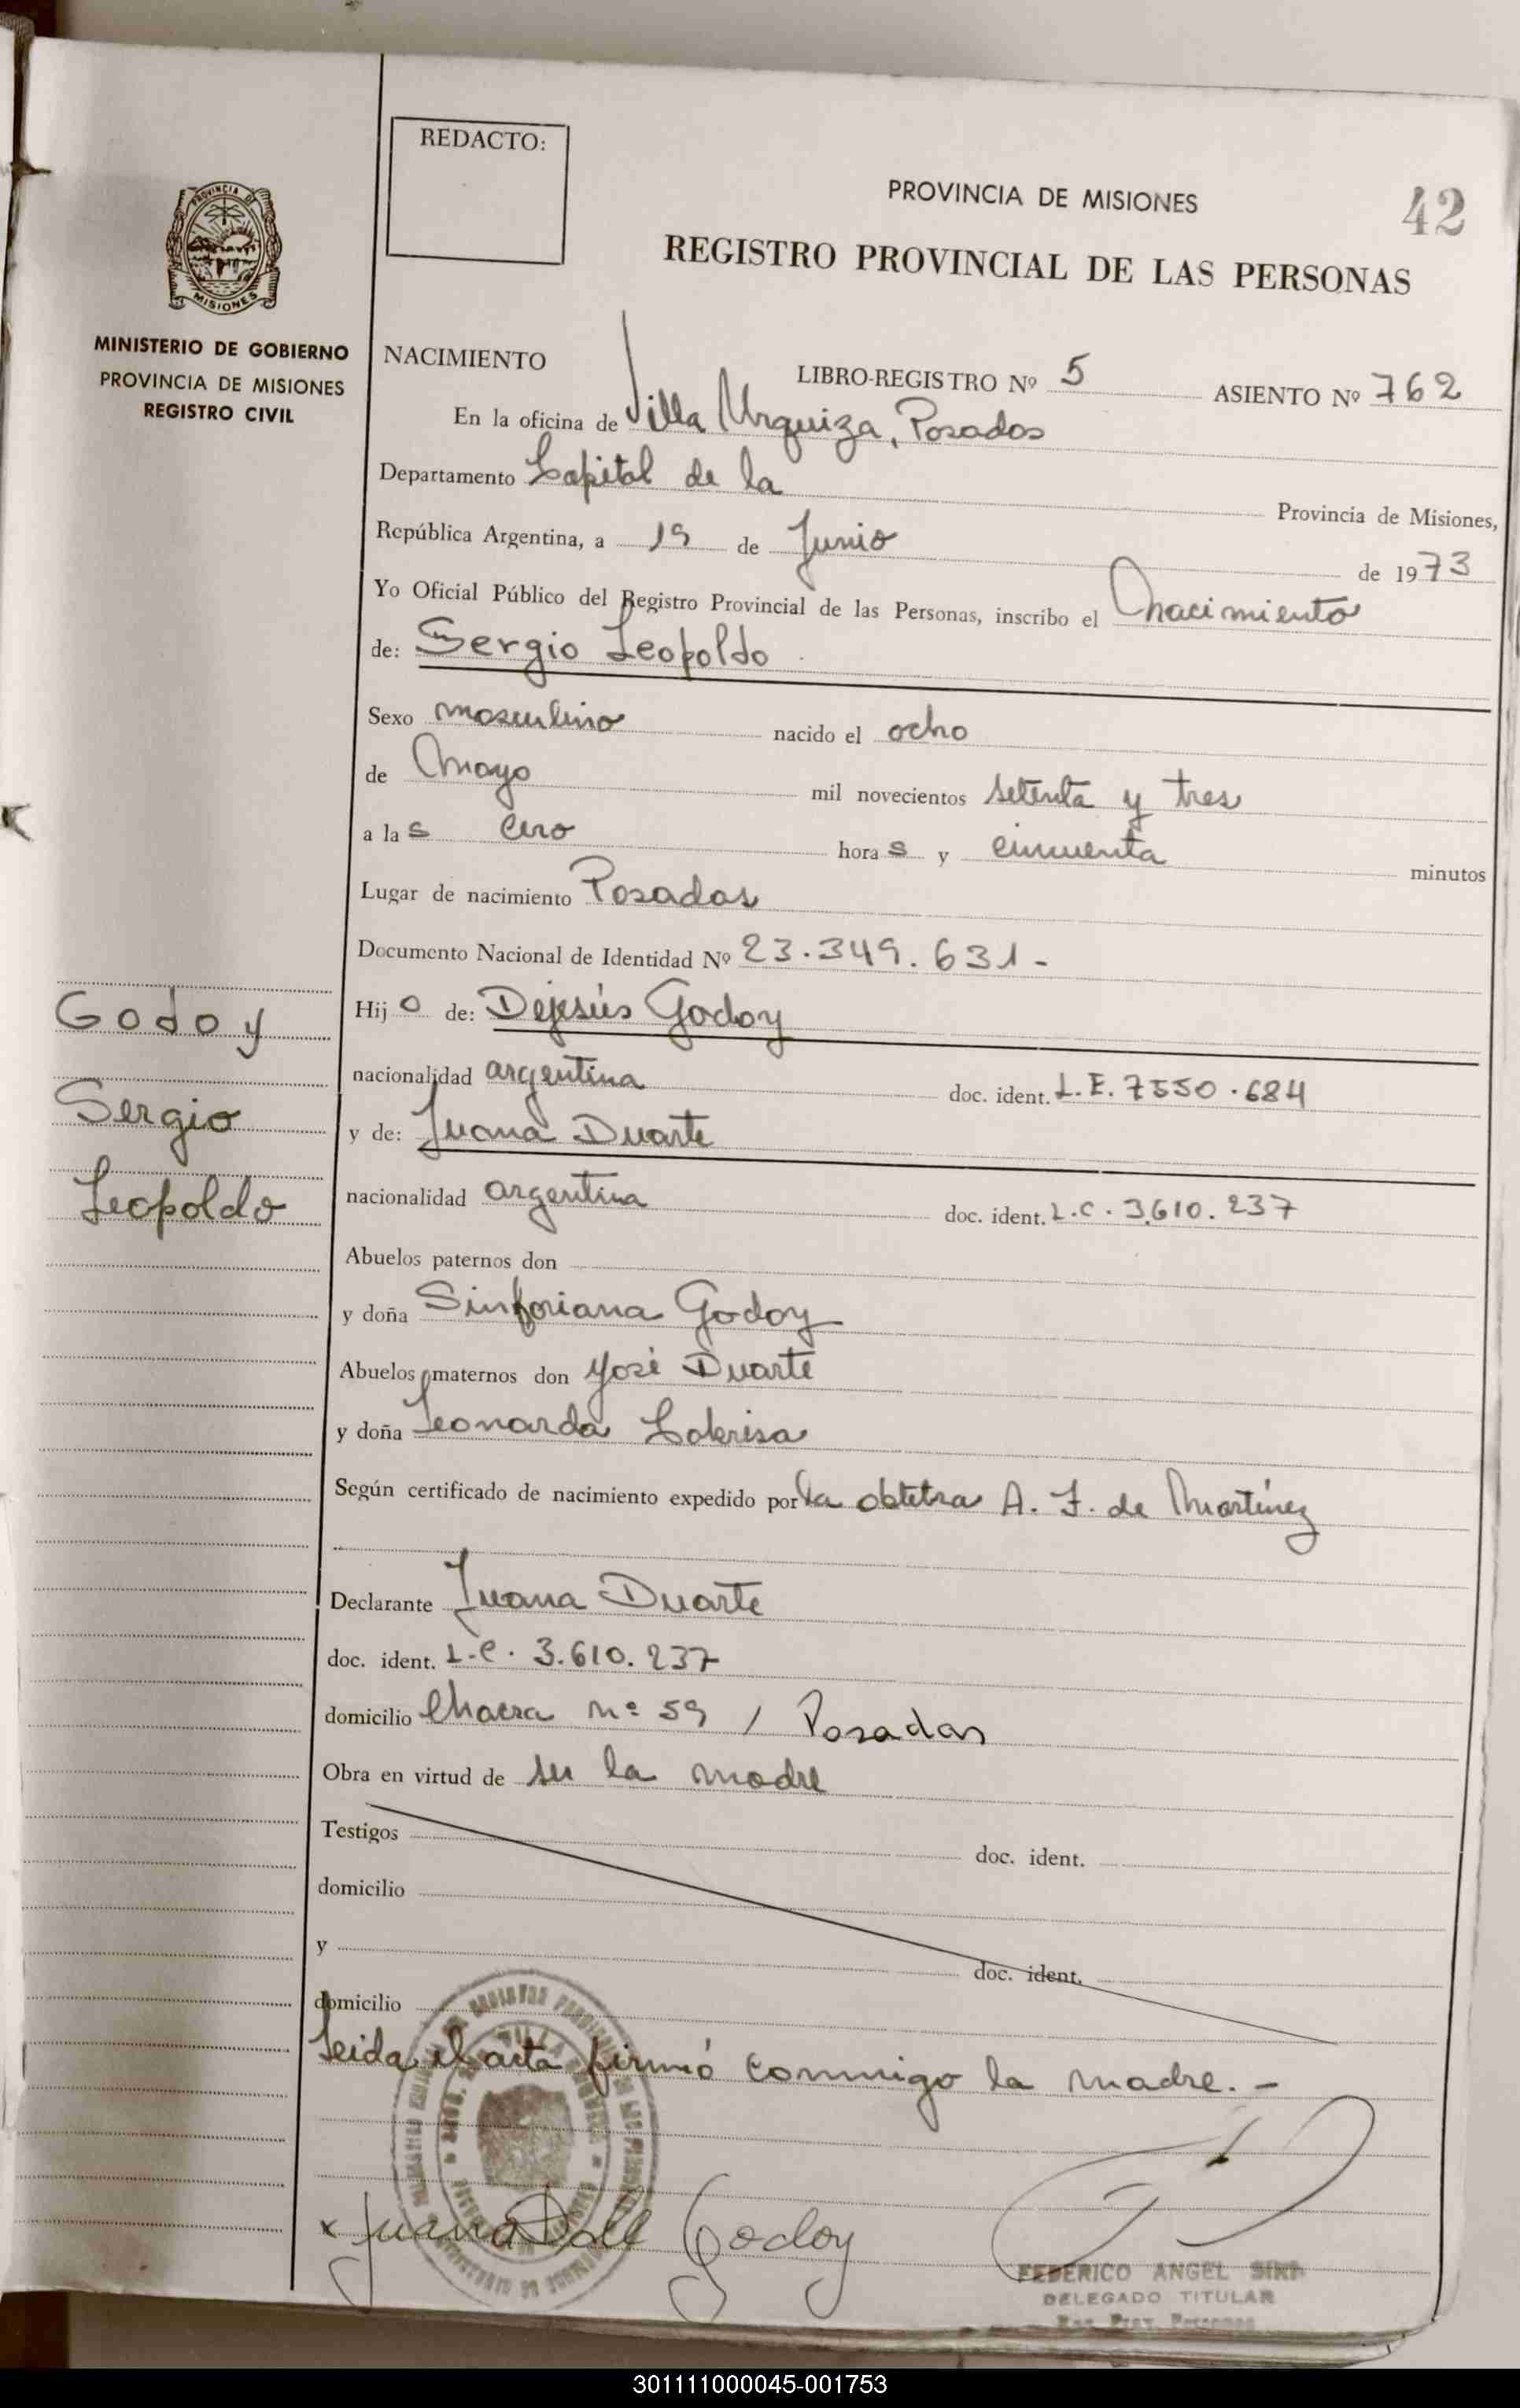 REDACTO:
PROVINCIA DE MISIONES
42
REGISTRO PROVINCIAL DE LAS PERSONAS
PROVINCIA DE
MISIONES
MINISTERIO DE GOBIERNO
PROVINCIA DE MISIONES
REGISTRO CIVIL
NACIMIENTO LIBRO-REGISTRO Nº 5 ASIENTO Nº 762
En la oficina de Villa Urquiza, Posadas
Departamento Capital de la Provincia de Misiones,
República Argentina, a 19 de Junio de 1973
Yo Oficial Público del Registro Provincial de las Personas, inscribo el Nacimiento
de: Sergio Leopoldo
Sexo masculino nacido el ocho
de Mayo mil novecientos setenta y tres
a las cero horas y cincuenta minutos
Lugar de nacimiento Posadas
Documento Nacional de Identidad Nº 23.349.631-
Hijo de: Dejesús Godoy
nacionalidad argentina doc. ident. L.E. 7550.684
y de: Juana Duarte
nacionalidad argentina doc. ident. L.C. 3.610.237
Godoy
Sergio
Leopoldo
Abuelos paternos don
y doña Sinforiana Godoy
Abuelos maternos don José Duarte
y doña Leonarda
Según certificado de nacimiento expedido por la obtetra A. F. de Martínez
Declarante Juana Duarte
doc. ident. L.C. 3.610.237
domicilio Chacra Nº 59 / Posadas
Obra en virtud de ser la madre
Testigos doc. ident.
domicilio
y doc. ident.
domicilio
Leida el acta firmó conmigo la madre.-
x Juana Godoy
FEDERICO ANGEL
DELEGADO TITULAR
301111000045-001753